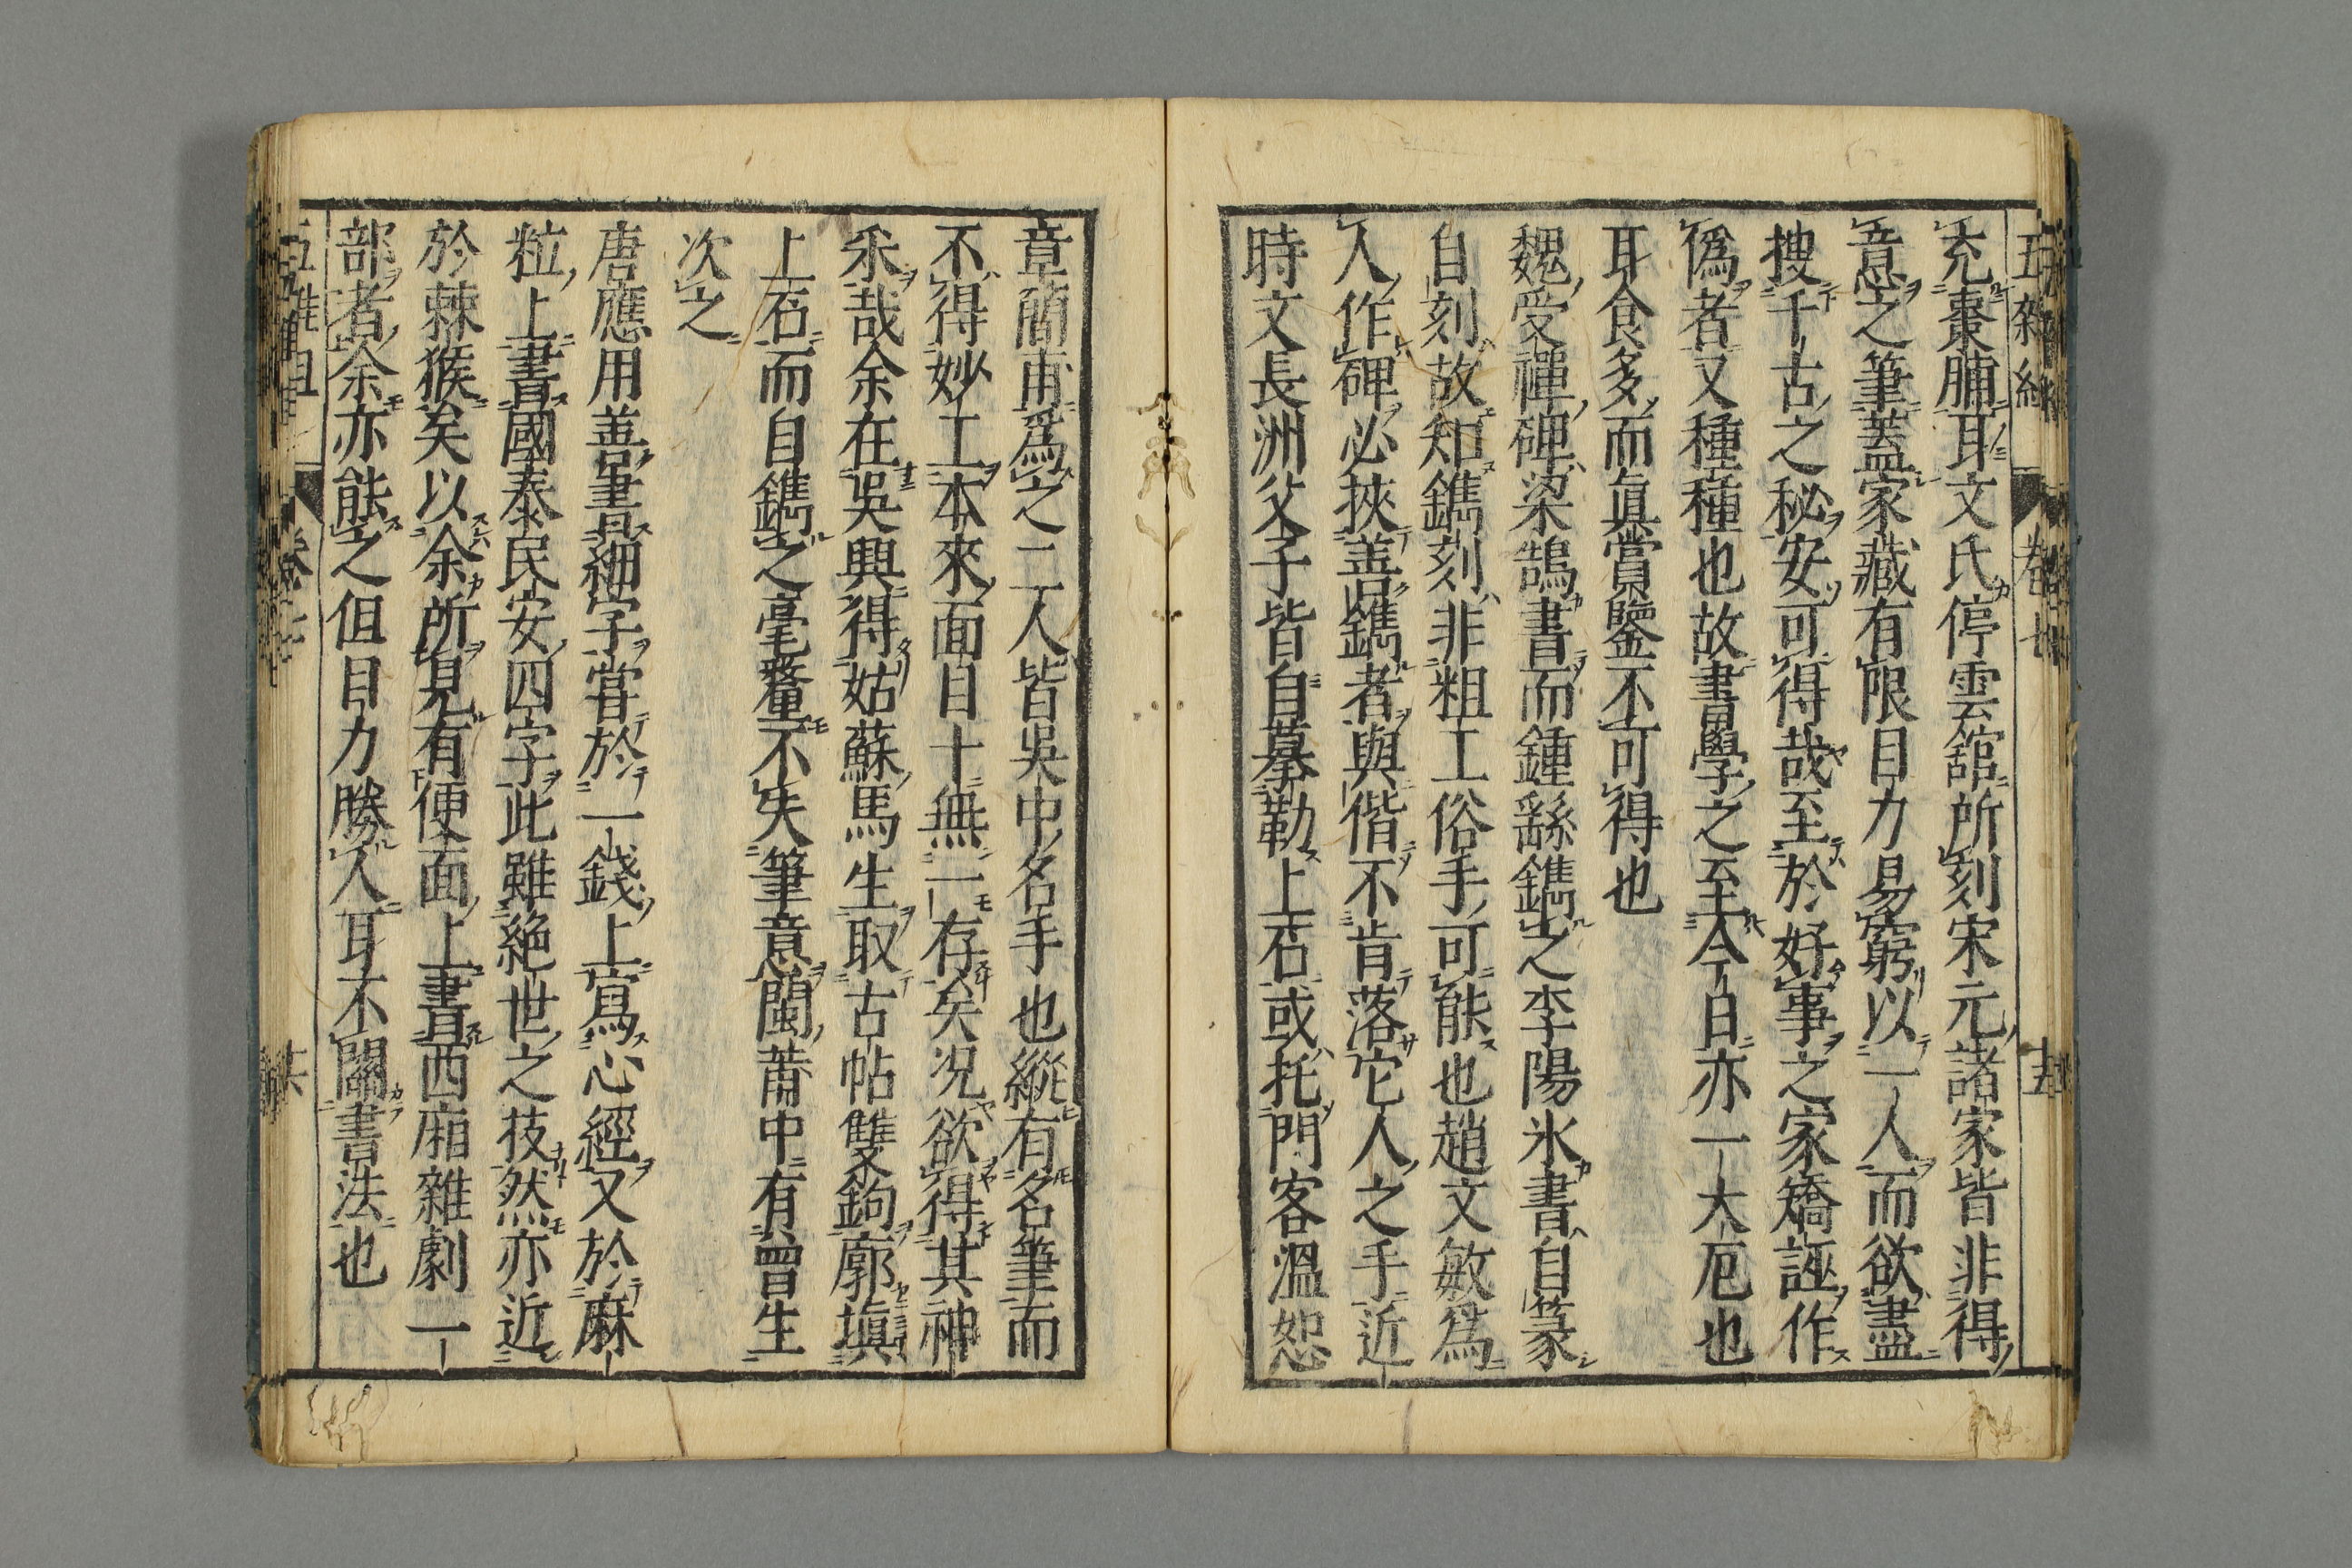 五雜組 卷七 十五
充棗脯耳文氏停雲舘所刻宋元諸家皆非得
意之筆蓋家藏有限目力易窮以一人而欲盡
搜千古之秘安可得哉至於好事之家矯誣作
僞者又種種也故書學之至今日亦一大厄也
耳食多而眞賞鑒不可得也
魏受禪碑梁鵠書而鍾繇鐫之李陽氷書自篆
自刻故知鐫刻非粗工俗手可能也趙文敏爲
人作碑必挾善鐫者與偕不肯落它人之手近
時文長洲父子皆自摹勒上石或托門客溫恕
章簡甫爲之二人皆吳中名手也縱有名筆而
不得妙工本來面目十無一存矣况欲得其神
采哉余在吳興得姑蘇馬生取古帖雙鉤廓塡
上石而自鐫之毫釐不失筆意閩莆中有曾生
次之
唐應用善書細字嘗於一錢上寫心經又於麻
粒上書國泰民安四字此雖絶世之技然亦近
於棘猴矣以余所見有便面上書西廂雜劇一
部者余亦能之但目力勝人耳不關書法也
五雜組 卷七 十六